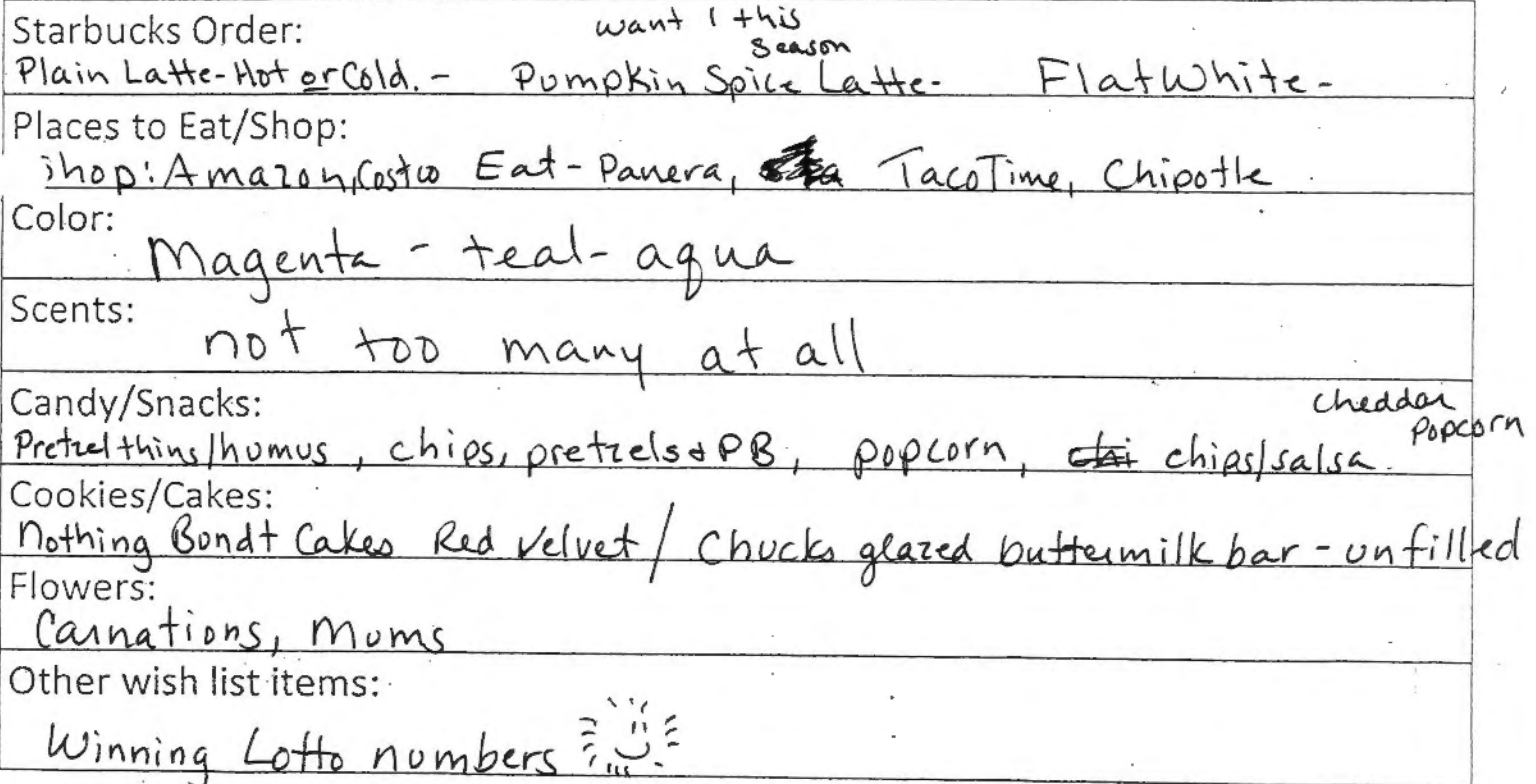 Starbucks Order:
want 1 this
season
Plain Latte-Hot or Cold. - Pumpkin Spice Latte- Flat White-
Places to Eat/Shop:
shop: Amazon, Costco Eat - Panera, TacoTime, Chipotle
Color:
Magenta - teal - aqua
Scents:
not too many at all
Candy/Snacks:
cheddar
popcorn
Pretzel thins/humus, chips, pretzels & PB, popcorn, chips/salsa
Cookies/Cakes:
Nothing Bondt Cakes Red Velvet / Chucks glazed buttermilk bar - unfilled
Flowers:
Carnations, Mums
Other wish list items:
Winning Lotto numbers